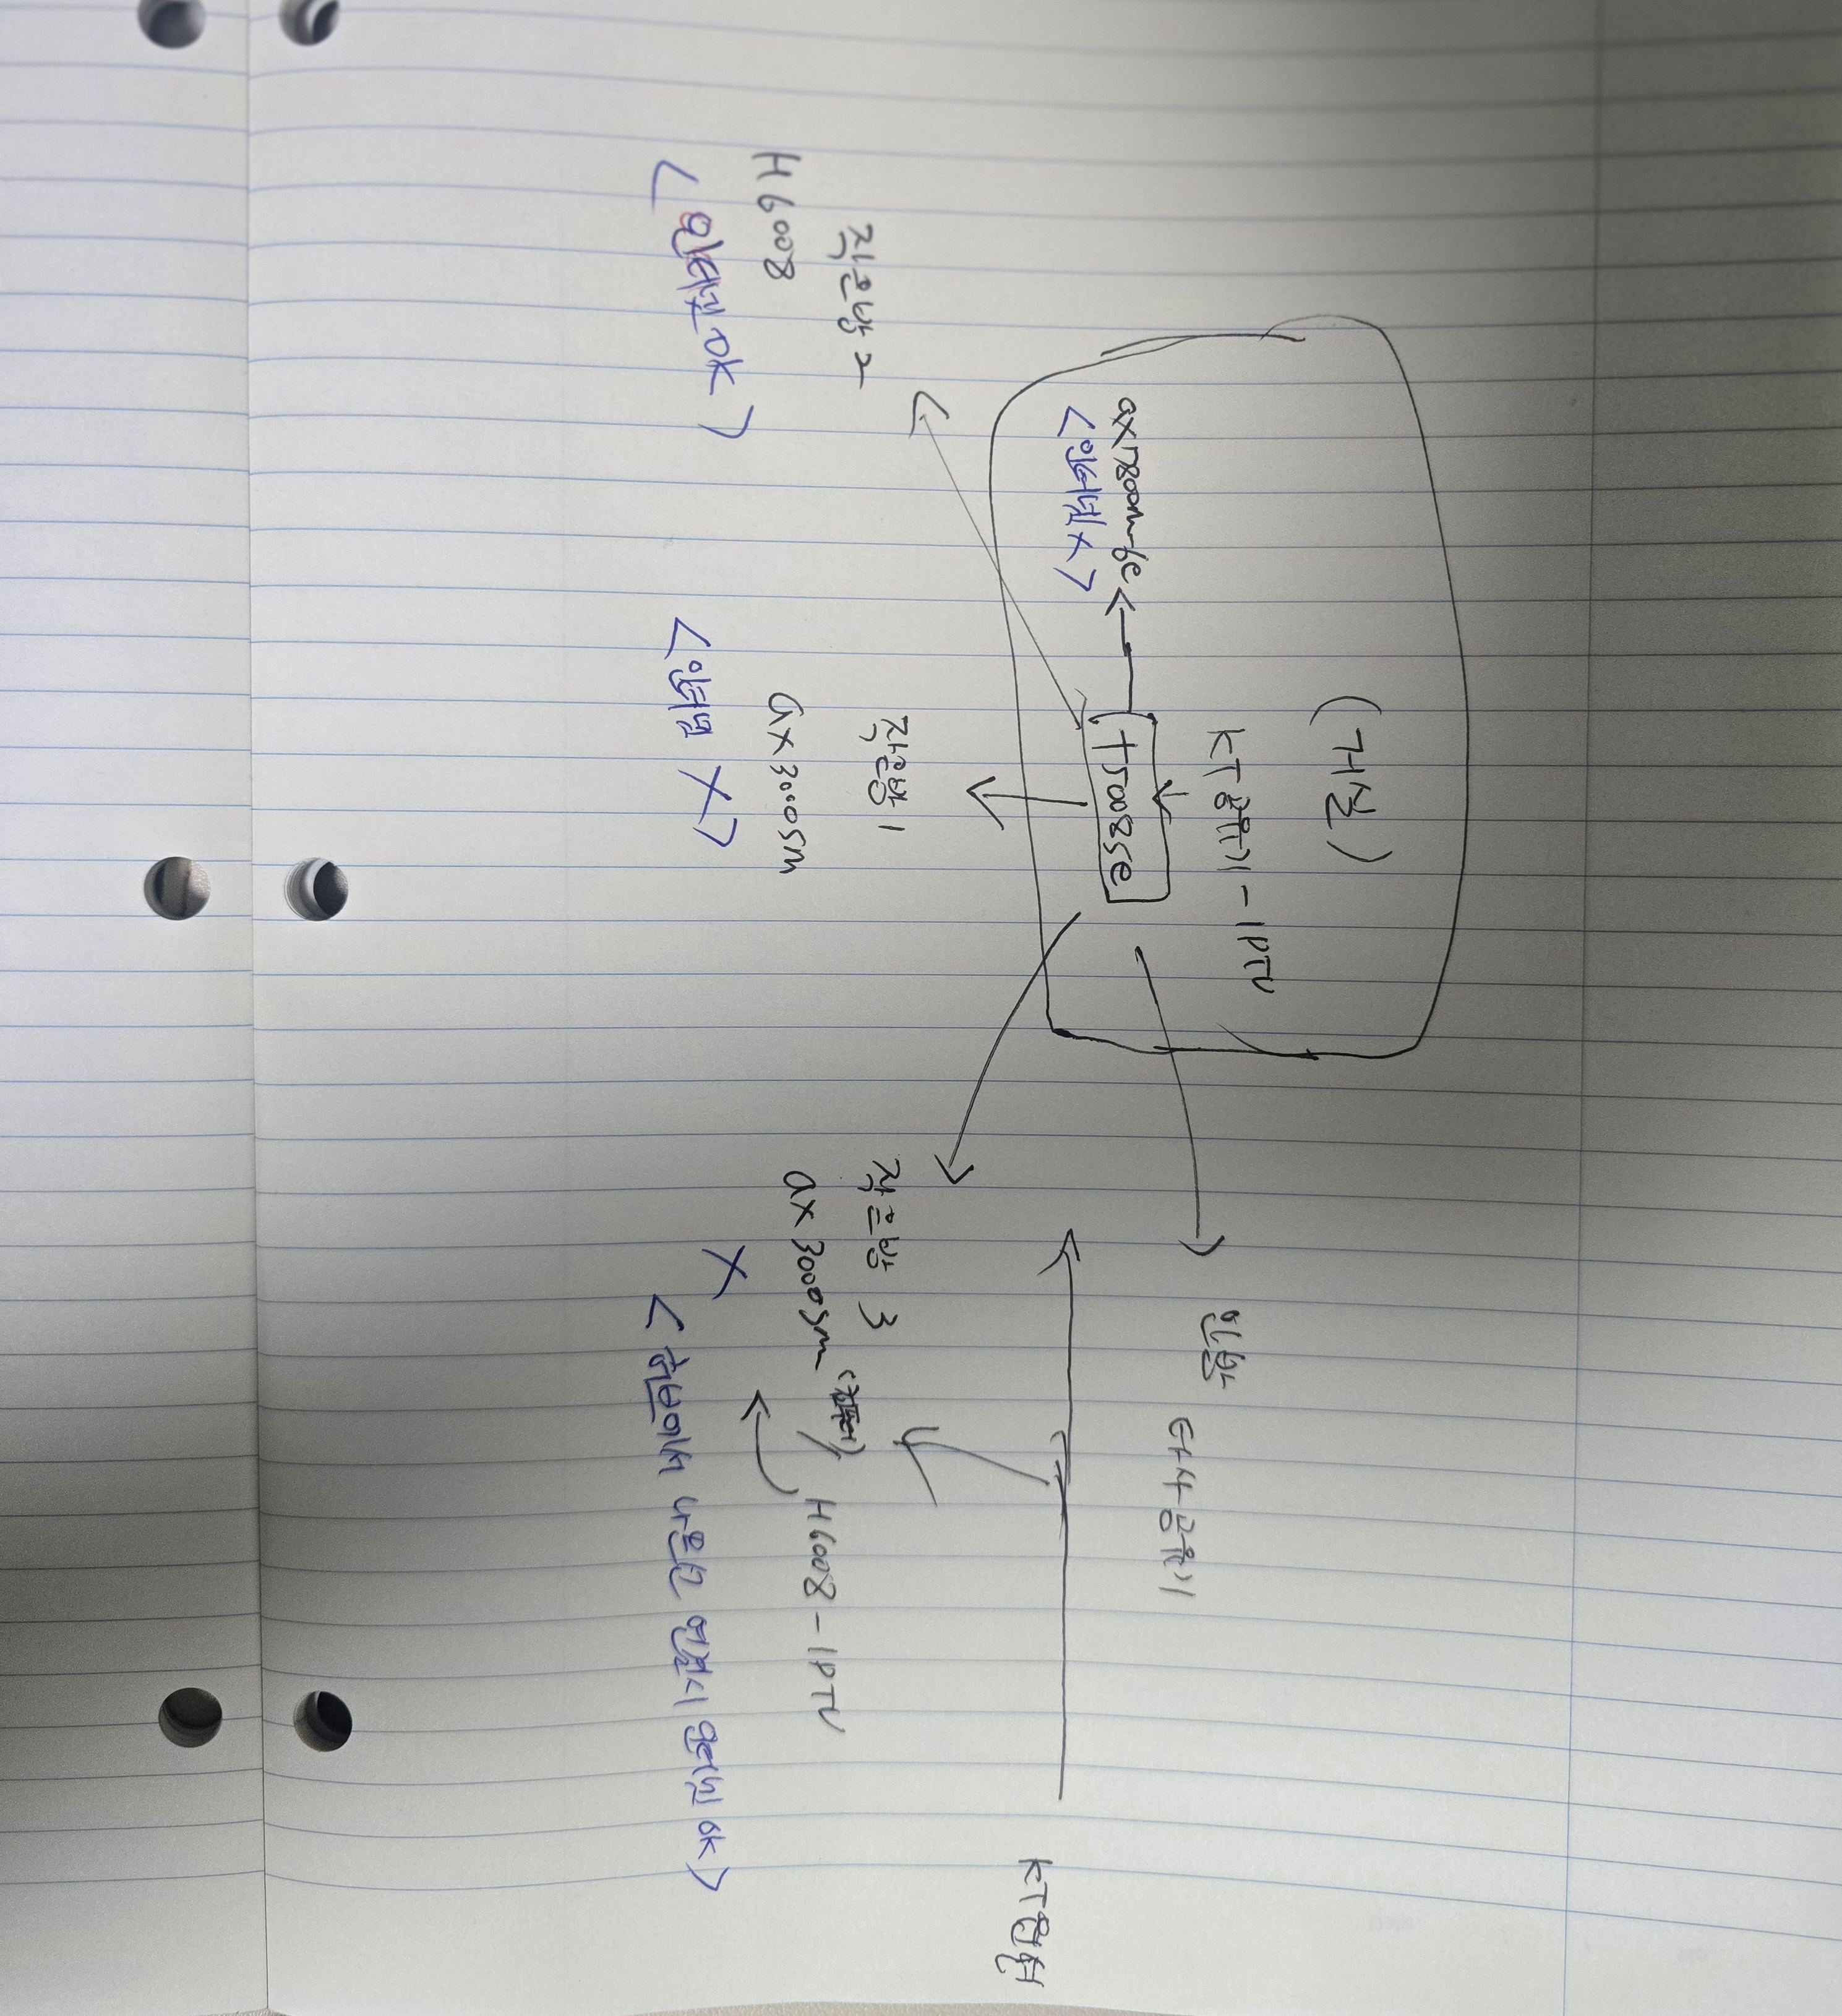 (거실)
KT공유기-IPTV
T5008se
ax7800m-6e
<인터넷 X>
작은방 2
H6008
<인터넷 OK>
작은방 1
ax3000sm
<인터넷 X>
안방
타사공유기
작은방 3
ax3000sm
H6008-IPTV
X
<허브에서 나온선 연결시 인터넷 ok>
KT원선